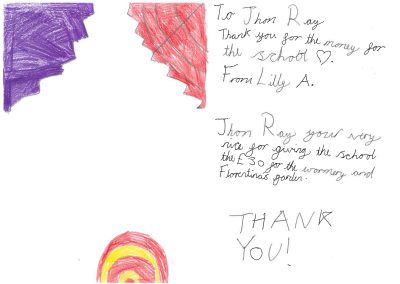 To Jhon Ray
Thank you for the money for
the school ♡.
From Lilly A.
Jhon Ray your very
nice for giving the school
the £30 for the wormery and
Florentina's garden.
THANK
YOU!